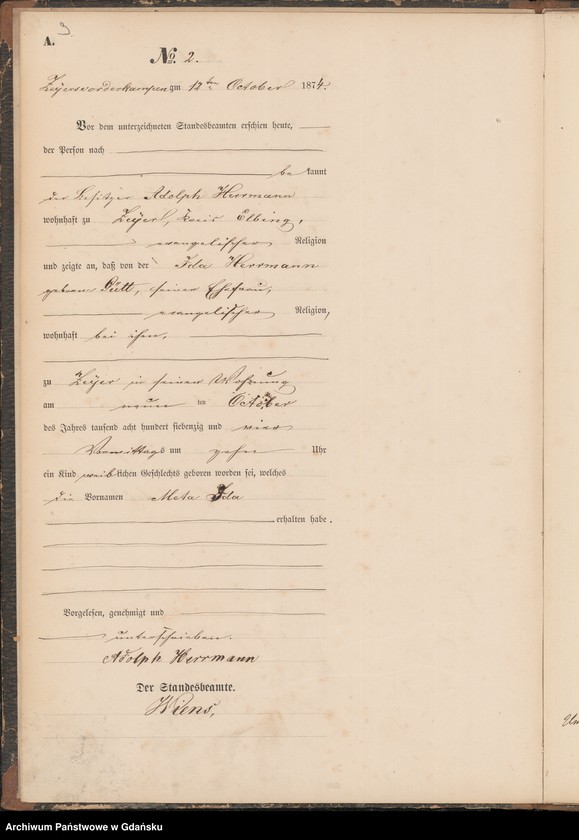 3
A.
No. 2.
Zeyersvorderkampen am 12ten October 1874.
Vor dem unterzeichneten Standesbeamten erschien heute,
der Person nach
bekannt
der Besitzer Adolph Herrmann
wohnhaft zu Zeyer, Kreis Elbing,
evangelischer Religion
und zeigte an, daß von der Ida Herrmann
geborene Gütt, seiner Ehefrau,
evangelischer Religion,
wohnhaft bei ihm,
zu Zeyer in seiner Wohnung
am neunten October
des Jahres tausend acht hundert siebenzig und vier
Vormittags um zehn Uhr
ein Kind weiblichen Geschlechts geboren worden sei, welches
die Vornamen Meta Ida
erhalten habe.
Vorgelesen, genehmigt und
unterschrieben.
Adolph Herrmann
Der Standesbeamte.
Wiens,
Archiwum Państwowe w Gdańsku